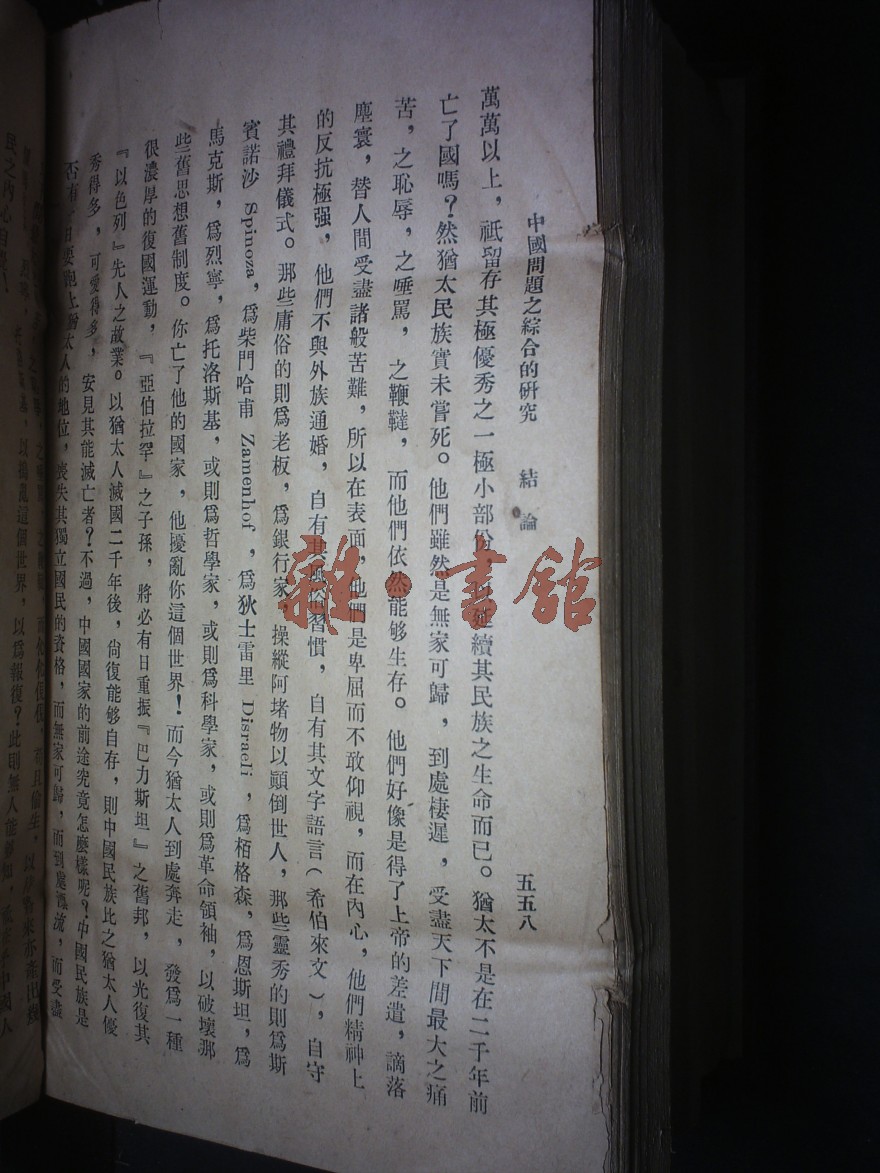 中國問題之綜合的硏究　結論　五五八
萬萬以上，祇留存其極優秀之一極小部份，以延續其民族之生命而已。猶太不是在二千年前
亡了國嗎？然猶太民族實未嘗死。他們雖然是無家可歸，到處棲遲，受盡天下間最大之痛
苦，之恥辱，之唾罵，之鞭韃，而他們依然能够生存。他們好像是得了上帝的差遣，謫落
塵寰，替人間受盡諸般苦難，所以在表面，他們是卑屈而不敢仰視，而在內心，他們精神上
的反抗極强，他們不與外族通婚，自有其風俗習慣，自有其文字語言（希伯來文），自守
其禮拜儀式。那些庸俗的則爲老板，爲銀行家，操縱阿堵物以顚倒世人，那些靈秀的則爲斯
賓諾沙 Spinoza，爲柴門哈甫 Zamenhof，爲狄士雷里 Disraeli，爲栢格森，爲恩斯坦，爲
馬克斯，爲烈寧，爲托洛斯基，或則爲哲學家，或則爲科學家，或則爲革命領袖，以破壞那
些舊思想舊制度。你亡了他的國家，他擾亂你這個世界！而今猶太人到處奔走，發爲一種
很濃厚的復國運動，『亞伯拉罕』之子孫，將必有日重振『巴力斯坦』之舊邦，以光復其
『以色列』先人之故業。以猶太人滅國二千年後，尙復能够自存，則中國民族比之猶太人優
秀得多，可愛得多，安見其能滅亡者？不過，中國國家的前途究竟怎麼樣呢？中國民族是
否有一日要跑上猶太人的地位，喪失其獨立國民的資格，而無家可歸，而到處漂流，而受盡
這個世界，以爲報復？此則無人能
雜·書館